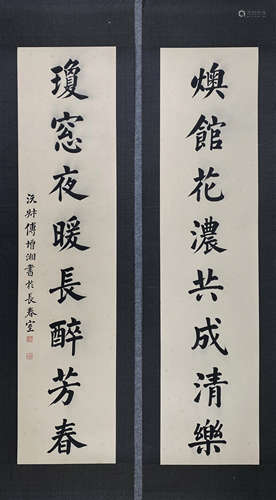 燠館花濃共成清樂
瓊窓夜暖長醉芳春
沅叔傅增湘書於長春室